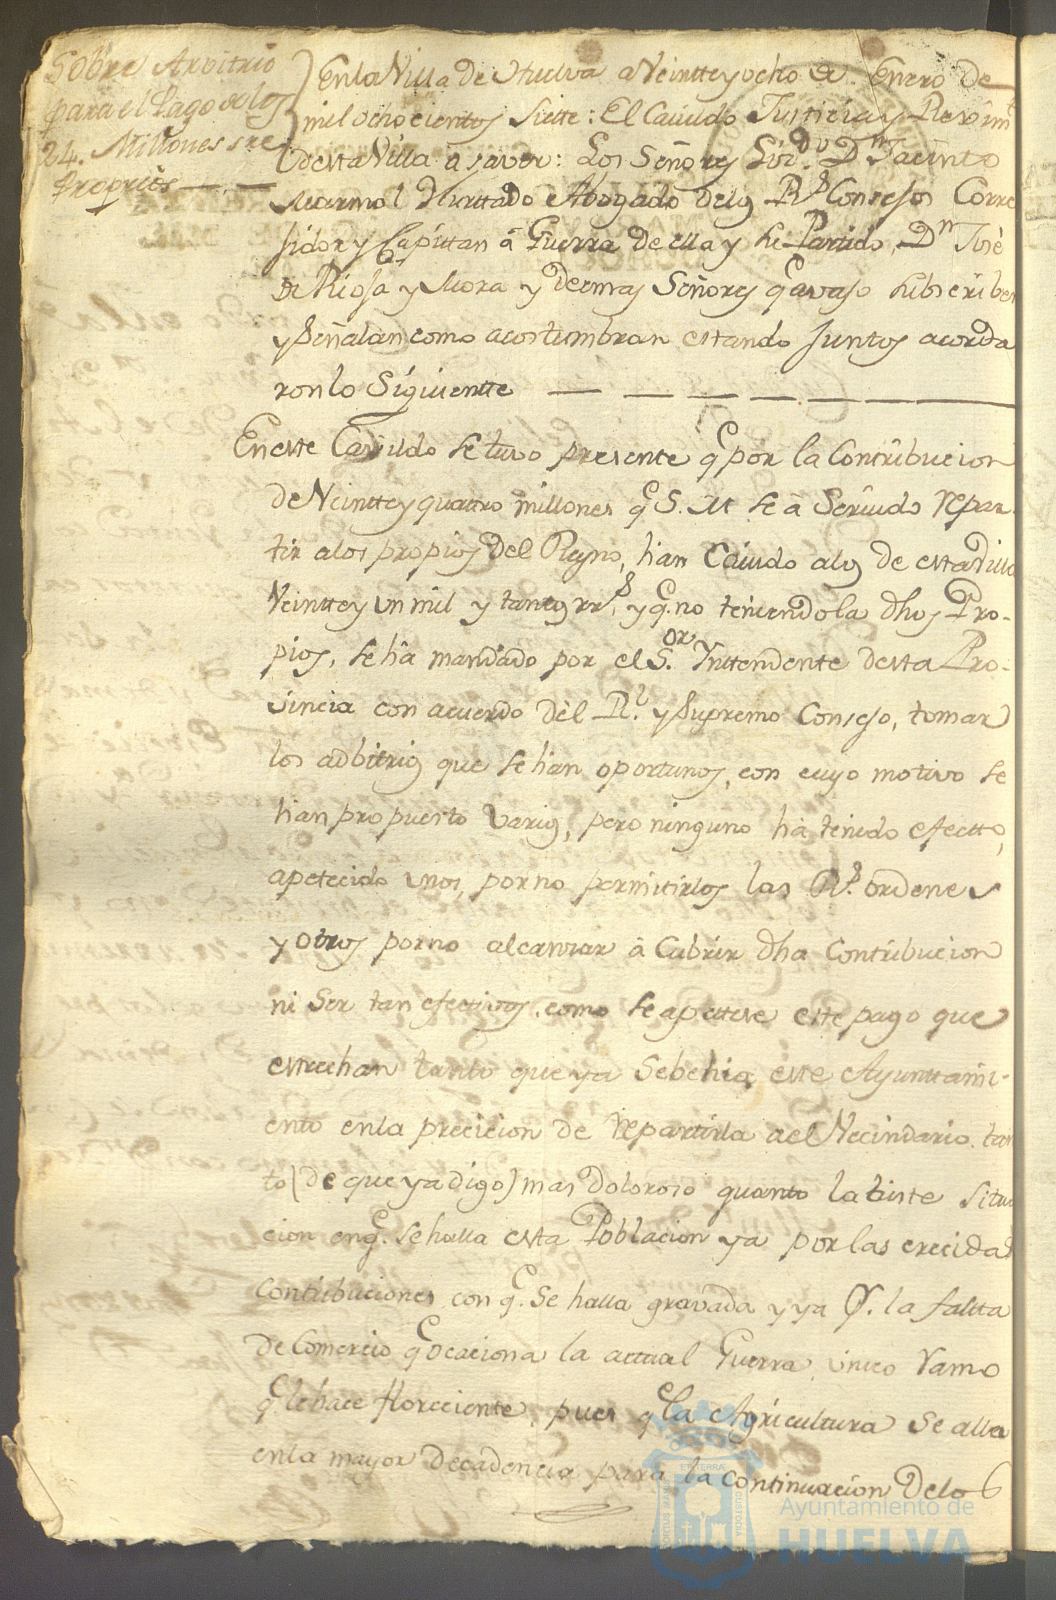 Sobre Arvitrio
para el Pago de los
24. Millones sre
Propios
En la Villa de Huelva a Veintte y ocho de Enero de
mil ocho cientos Siete: El Cavildo Justicia y Reximto
de esta Villa a saver: Los Señores Lizdo Dn Jacinto
Marmol Hurttado Abogado de los Rs Consejos Corre
jidor y Capittan â Guerra de ella y su Partido, Dn José
de Rioja y Mora y demas Señores q avajo subscriben
y Señalan como acostumbran estando Juntos acorda
ron lo Siguientte
En este Cavildo se tuvo presente q por la Contribucion
de Veintte y quattro millones q S. M. se â Servido repar
tir a los propios del Reyno, han Cavido a los de esta Villa
Veintte y un mil y tantos rrs, y q. no teniendola dhos Pro-
pios, se hâ mandado por el Sor. Inttendente de esta Pro-
vincia con acuerdo del Rl. y Supremo Consejo, tomar
los adbitrios que se han oportunos, con cuyo motivo se
han propuesto varios, pero ninguno hâ tenido efectto,
apetecido unos, por no permitirlos las Rs. ordenes
y otros por no alcanzar â Cubrir dha Contribucion
ni Ser tan efectivos como se apettese este pago que
estrechan tanto que ya se behia este Ayunttami-
ento en la precicion de repartirla a el Vecindario tan
to (de que ya digo) mas doloroso quanto la triste Situa
cion en q. se halla esta Poblacion ya por las crecidas
Contribuciones con q. Se halla gravada y ya Pr. la faltta
de Comercio q ocaciona la actual Guerra, unico ramo
q. le hace floreciente, pues q la Agricultura se alla
en la mayor Decadencia para la continuacion de los
Ayuntamiento de
HUELVA